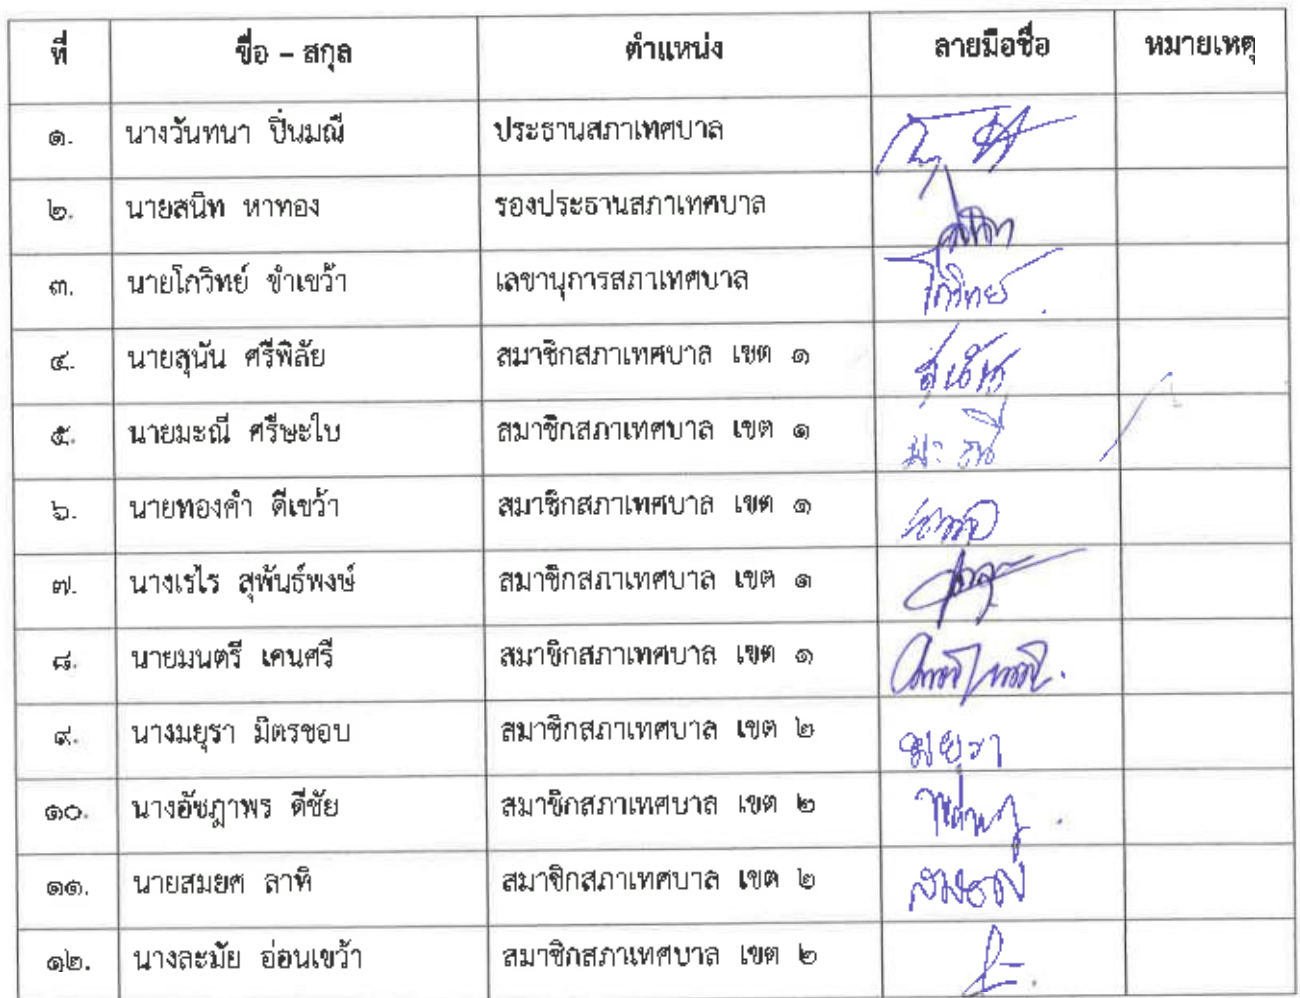 ที่ ชื่อ – สกุล ตำแหน่ง ลายมือชื่อ หมายเหตุ
๑. นางวันทนา ปิ่นมณี ประธานสภาเทศบาล
๒. นายสนิท หาทอง รองประธานสภาเทศบาล
๓. นายโกวิทย์ ขำเขว้า เลขานุการสภาเทศบาล โกวิทย์
๔. นายสุนัน ศรีพิลัย สมาชิกสภาเทศบาล เขต ๑
๕. นายมะณี ศรีษะใบ สมาชิกสภาเทศบาล เขต ๑
๖. นายทองคำ ดีเขว้า สมาชิกสภาเทศบาล เขต ๑
๗. นางเรไร สุพันธ์พงษ์ สมาชิกสภาเทศบาล เขต ๑
๘. นายมนตรี เคนศรี สมาชิกสภาเทศบาล เขต ๑
๙. นางมยุรา มิตรชอบ สมาชิกสภาเทศบาล เขต ๒ มยุรา
๑๐. นางอัชฎาพร ดีชัย สมาชิกสภาเทศบาล เขต ๒
๑๑. นายสมยศ ลาทิ สมาชิกสภาเทศบาล เขต ๒ สมยศ
๑๒. นางละมัย อ่อนเขว้า สมาชิกสภาเทศบาล เขต ๒